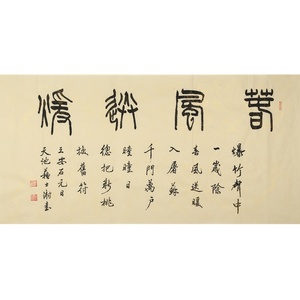 春風送暖
爆竹聲中
一歲除
春風送暖
入屠蘇
千門萬戶
曈曈日
總把新桃
換舊符
王安石元日
天池